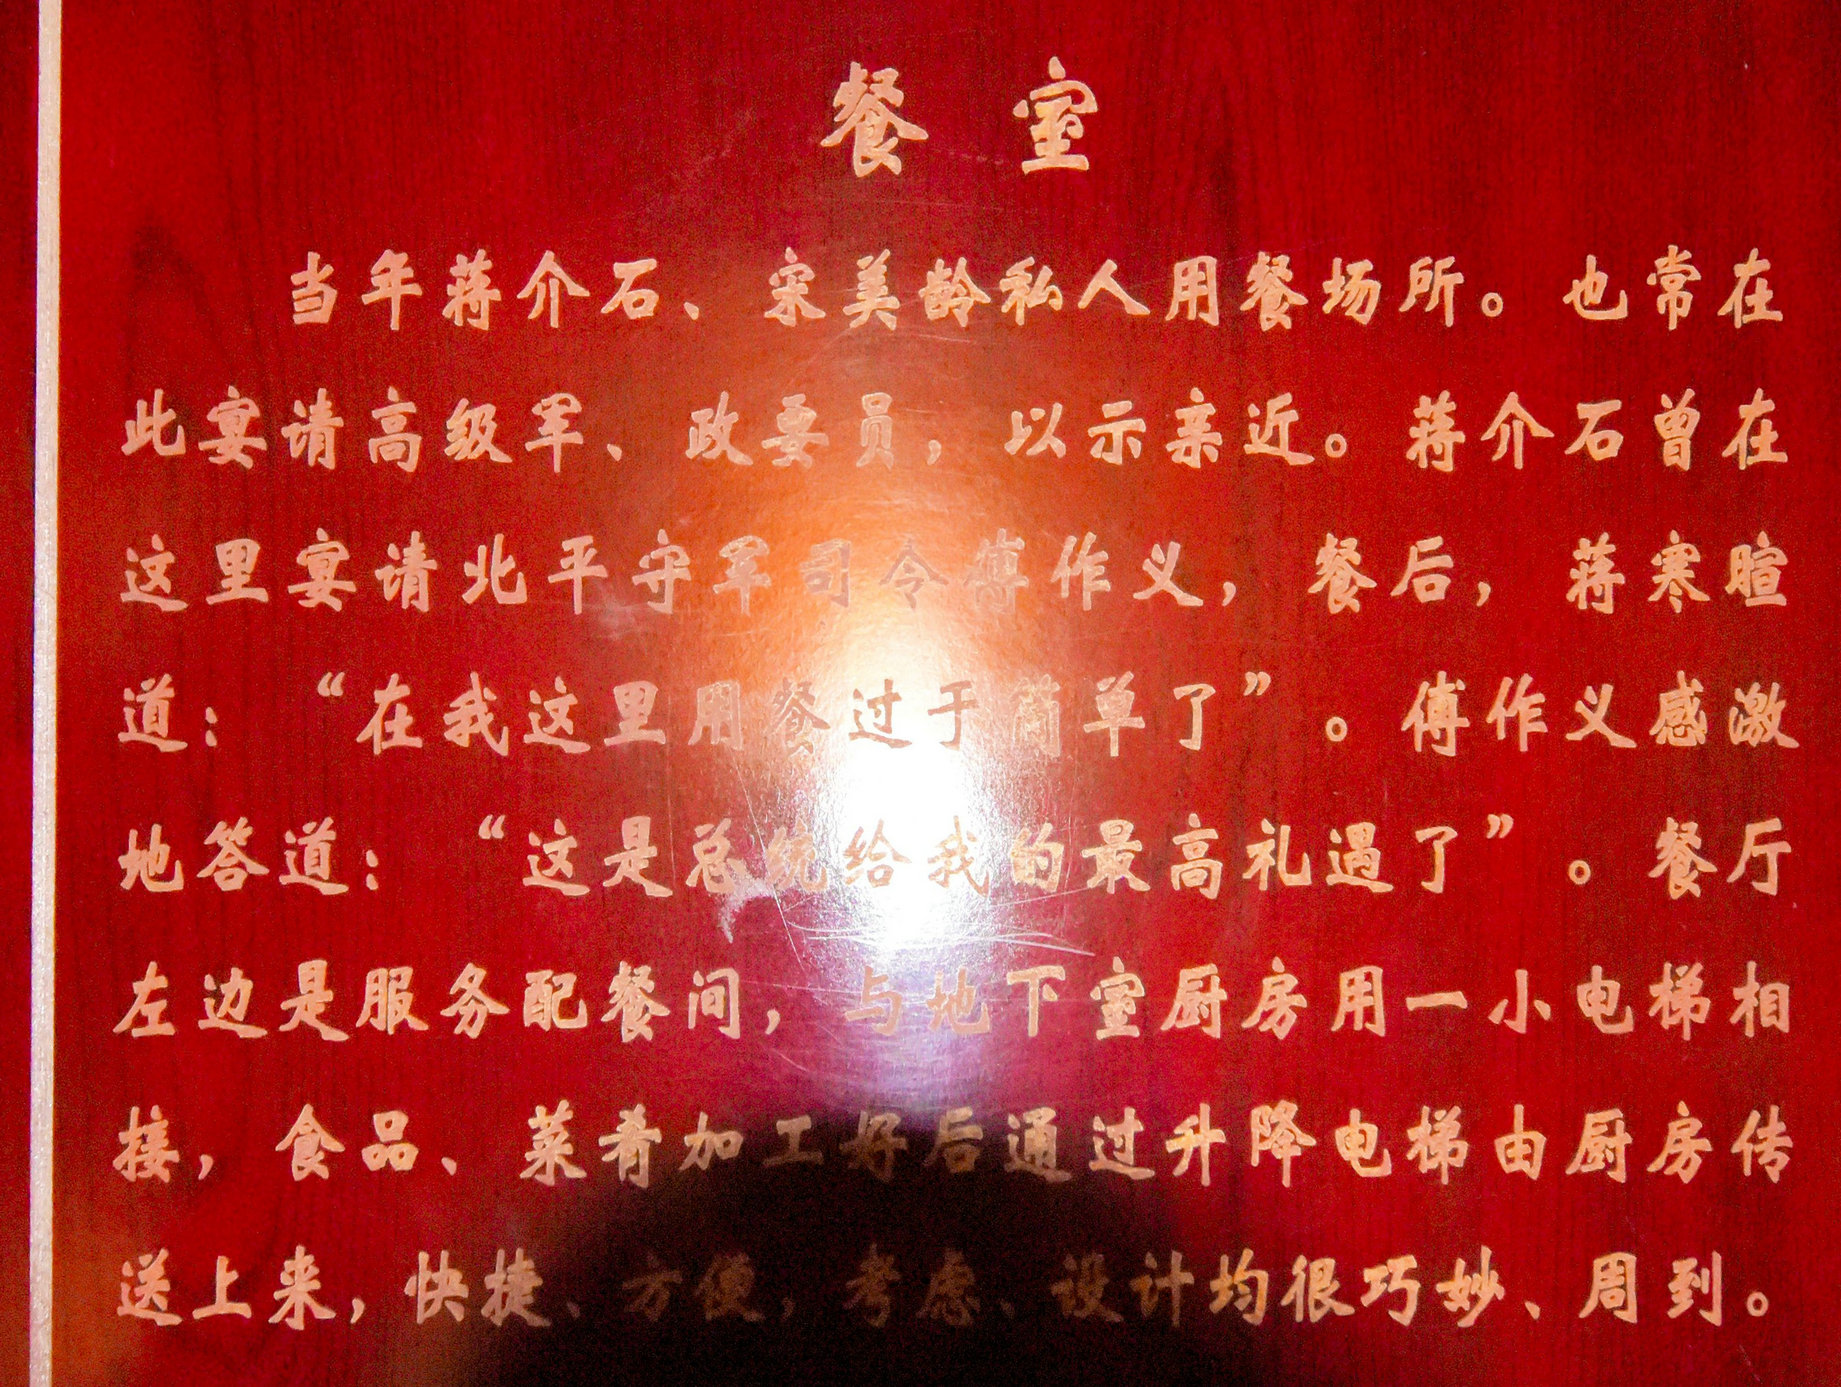 餐室
当年蒋介石、宋美龄私人用餐场所。也常在
此宴请高级军、政要员，以示亲近。蒋介石曾在
这里宴请北平守军司令傅作义，餐后，蒋寒暄
道：“在我这里用餐过于简单了”。傅作义感激
地答道：“这是总统给我的最高礼遇了”。餐厅
左边是服务配餐间，与地下室厨房用一小电梯相
接，食品、菜肴加工好后通过升降电梯由厨房传
送上来，快捷、方便，考虑、设计均很巧妙、周到。